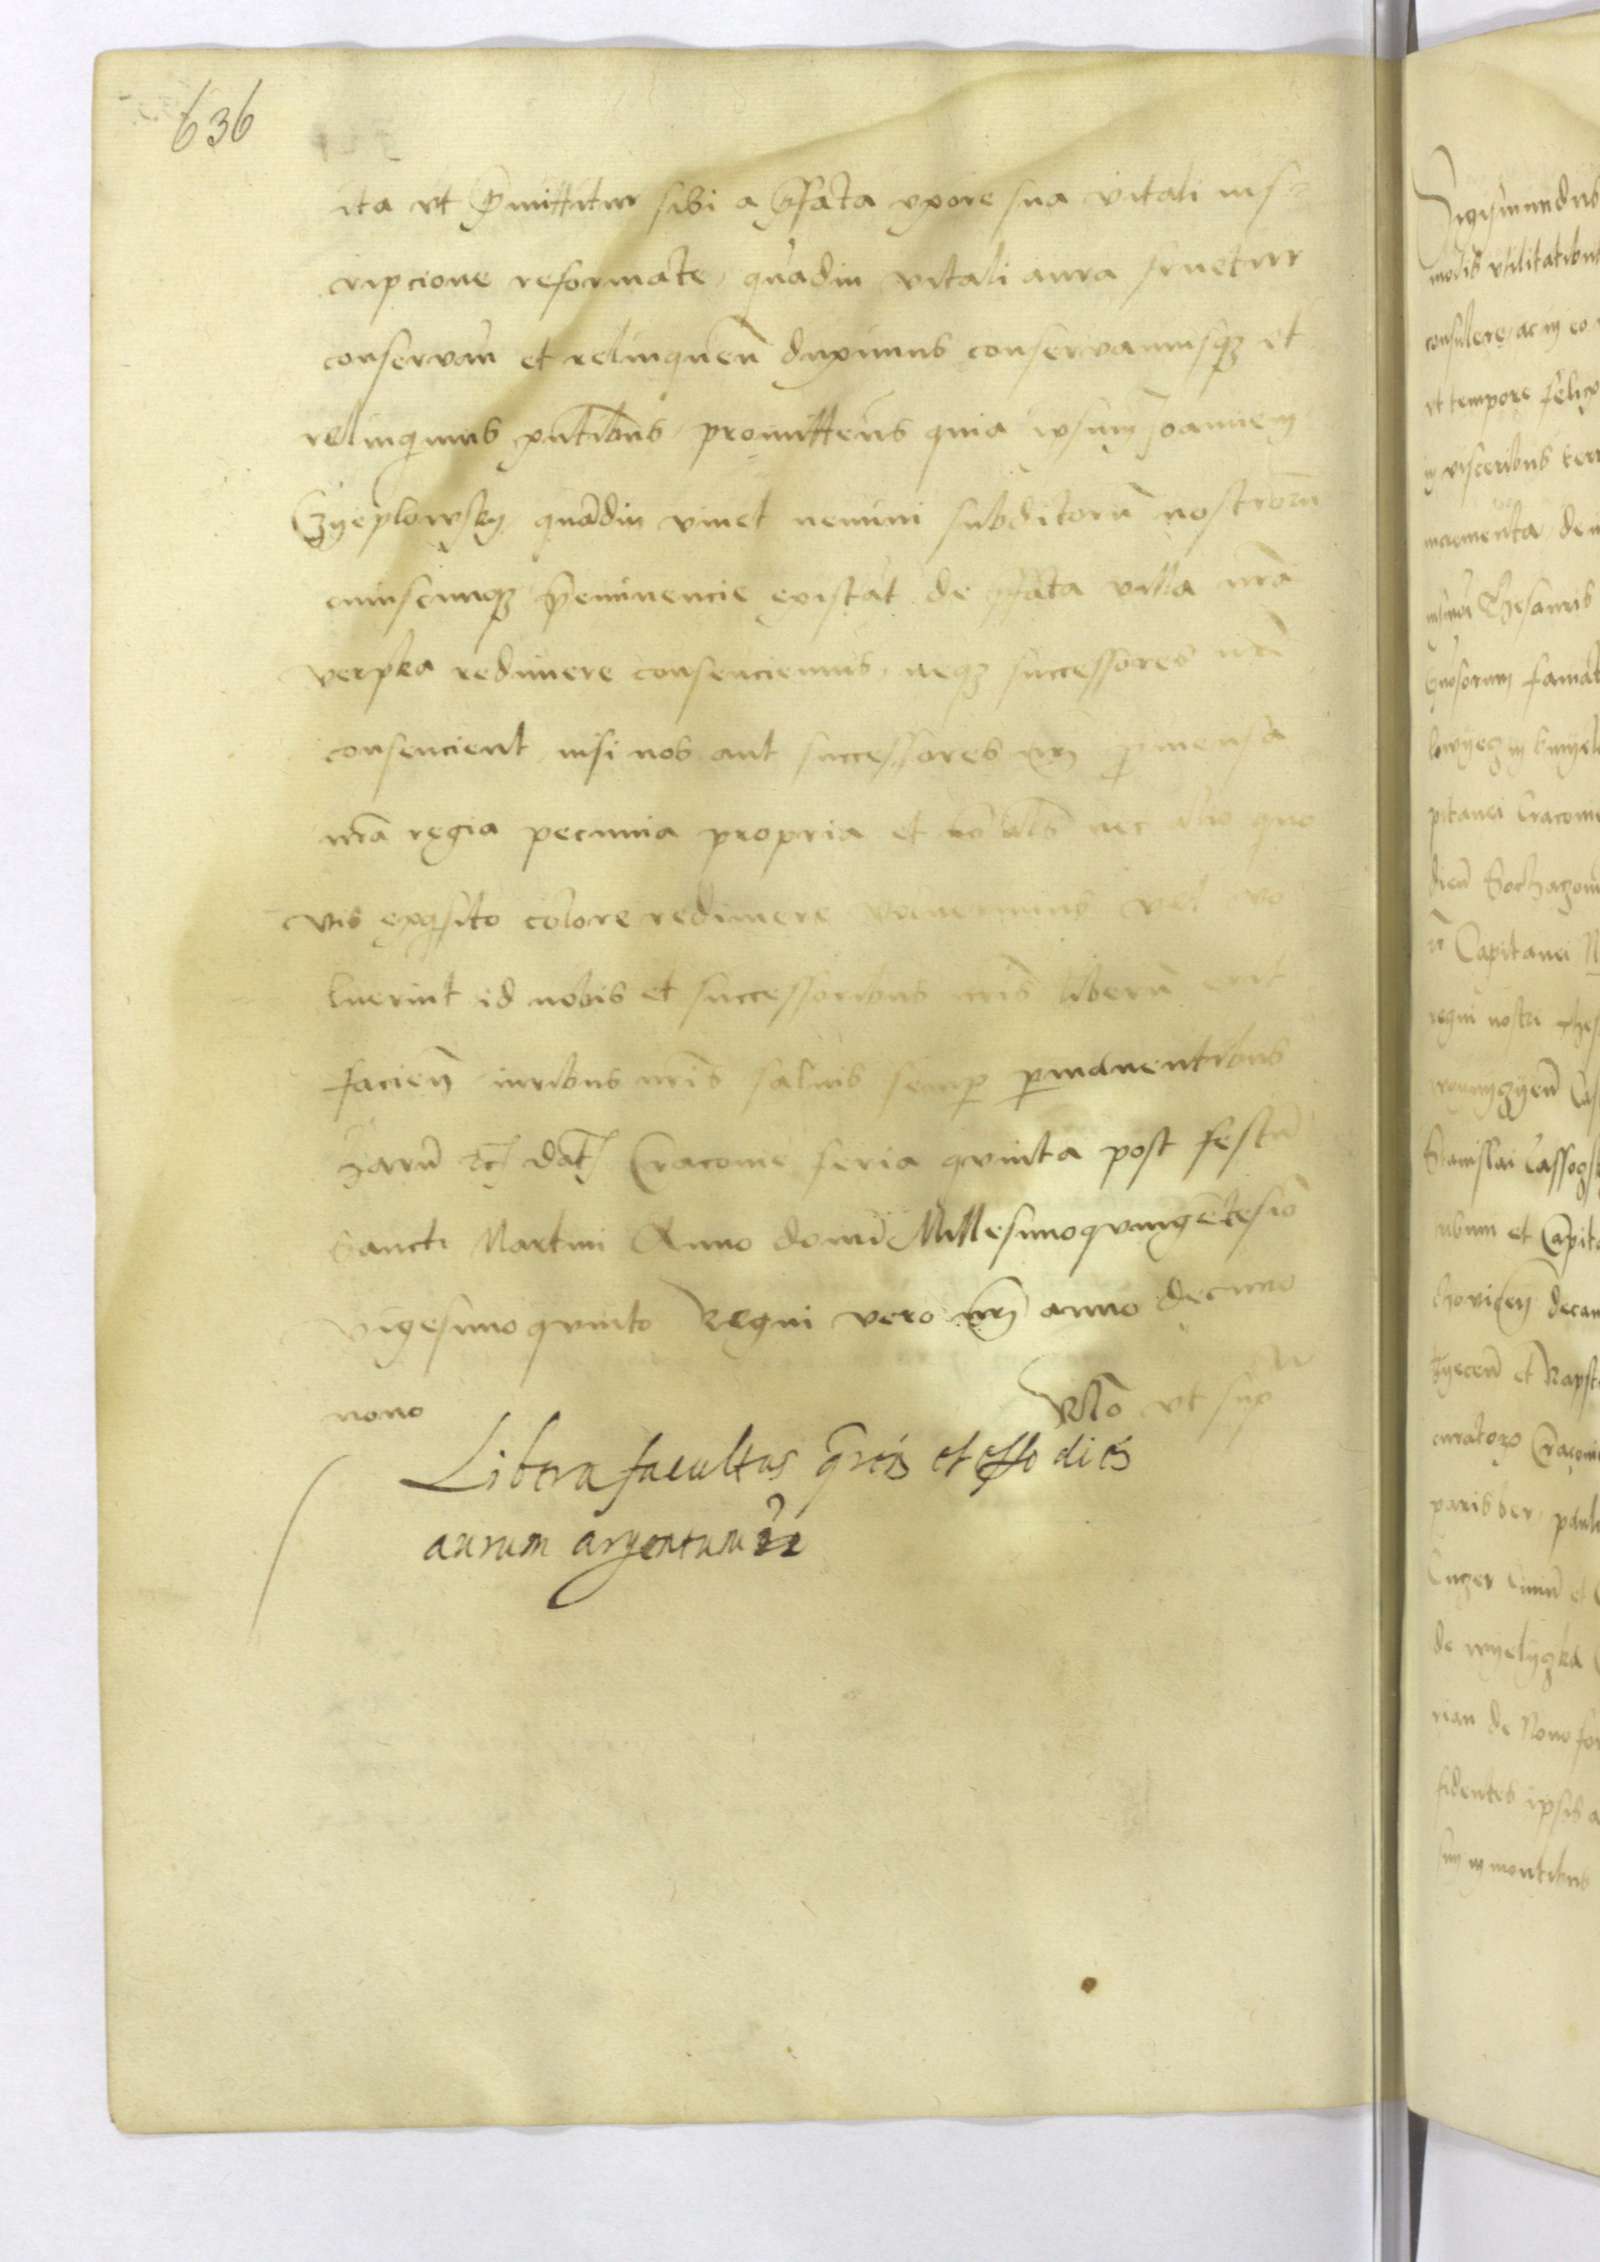 636
ita ut p̄mittitur sibi a p̄fata uxore sua vitali ins
cripcione reformate, quādiu vitali aura fruetur
conservan̄ et relinquen̄ duximus conservamusqз et
relinquimus p̄ntibus, promitten̄s quia ipsum Joannem
Czyeplowsky quādiu vivet nemini subditorū nostrorū
cuiuscunqз p̄eminencie existat de p̄fata villa nr̄a
verpka redimere consenciemus, neqз successores nr̄i
consencient, nisi nos aut successores nr̄i p̄ mensa
nr̄a regia pecunia propria et nō als̄ nec alio quo
vis exq̄sito colore redimere voluerimus vel vo
luerint id nobis et successoribus nr̄is liberū erit
facien̄ iuribus nr̄is salvis semp̱ p̱manentibus
harū etc dat Cracovie feria quinta post festū
sancti Martini Anno domī Millesimoquingētesīo
vigesimoquinto Regni vero nr̄i anno decimo
nono
Rl̄o ut sup̱
Libera facultas
et effodiēs
aurum argentum
Sigismundus
modis utilitatibus
consulere, ac in eo
et tempore felici
in visceribus terr
Thesauris
pitanei Cracovi
Capitanei
regni nostri thes
Stanislai
et Capita
decan
et
curatorꝝ Cracovi
paul
de wyelyczka
rian de Novo for
fidentes ipsis a
in montibus